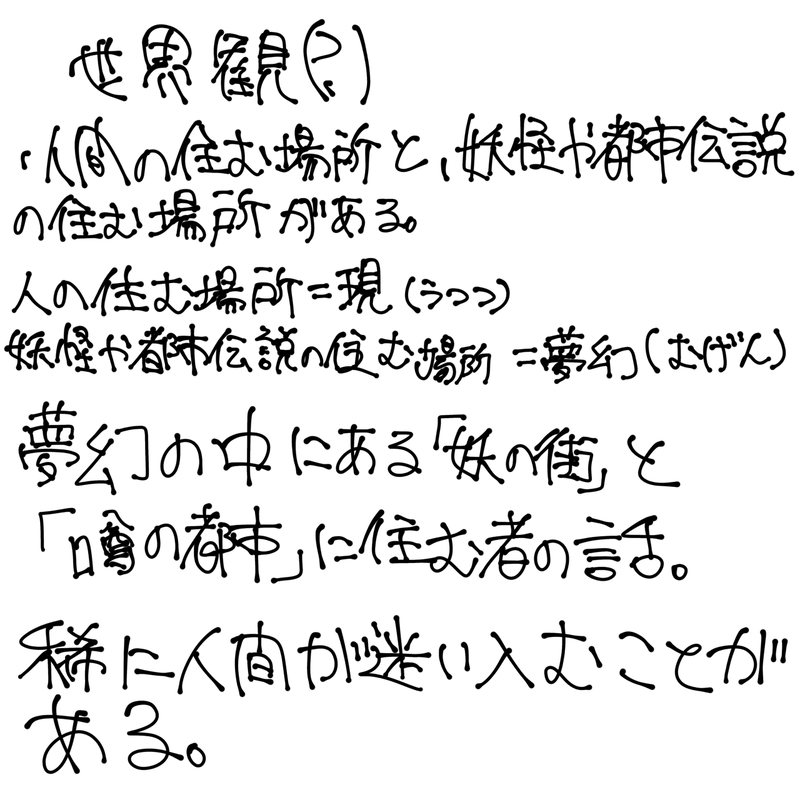 世界観(?)
・人間の住む場所と、妖怪や都市伝説
の住む場所がある。
人の住む場所=現(うつつ)
妖怪や都市伝説の住む場所=夢幻(むげん)
夢幻の中にある「妖の街」と
「噂の都市」に住む者の話。
稀に人間が迷い入むことが
ある。